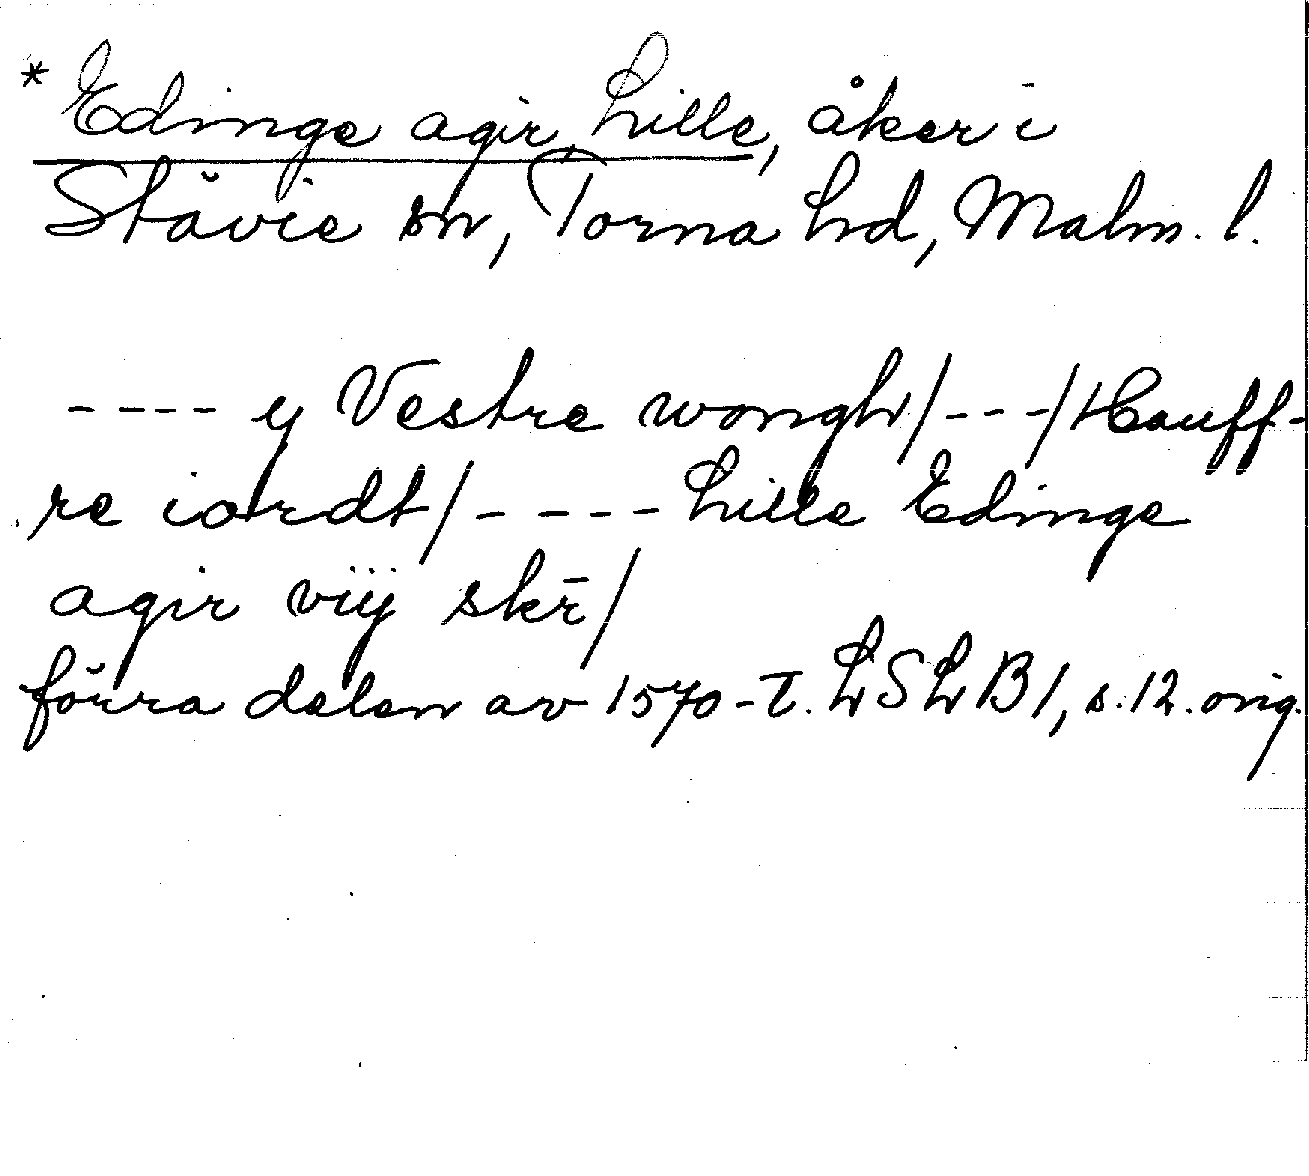 * Edinge agir, Lille, åker i
Stävie sn, Torna hd, Malm. l.
---- y Vestre wongh/---/Hauff-
re iordt/---- Lille Edinge
agir vÿ skr̄/
förra delen av 1570-t. LSLB1, s.12. orig.